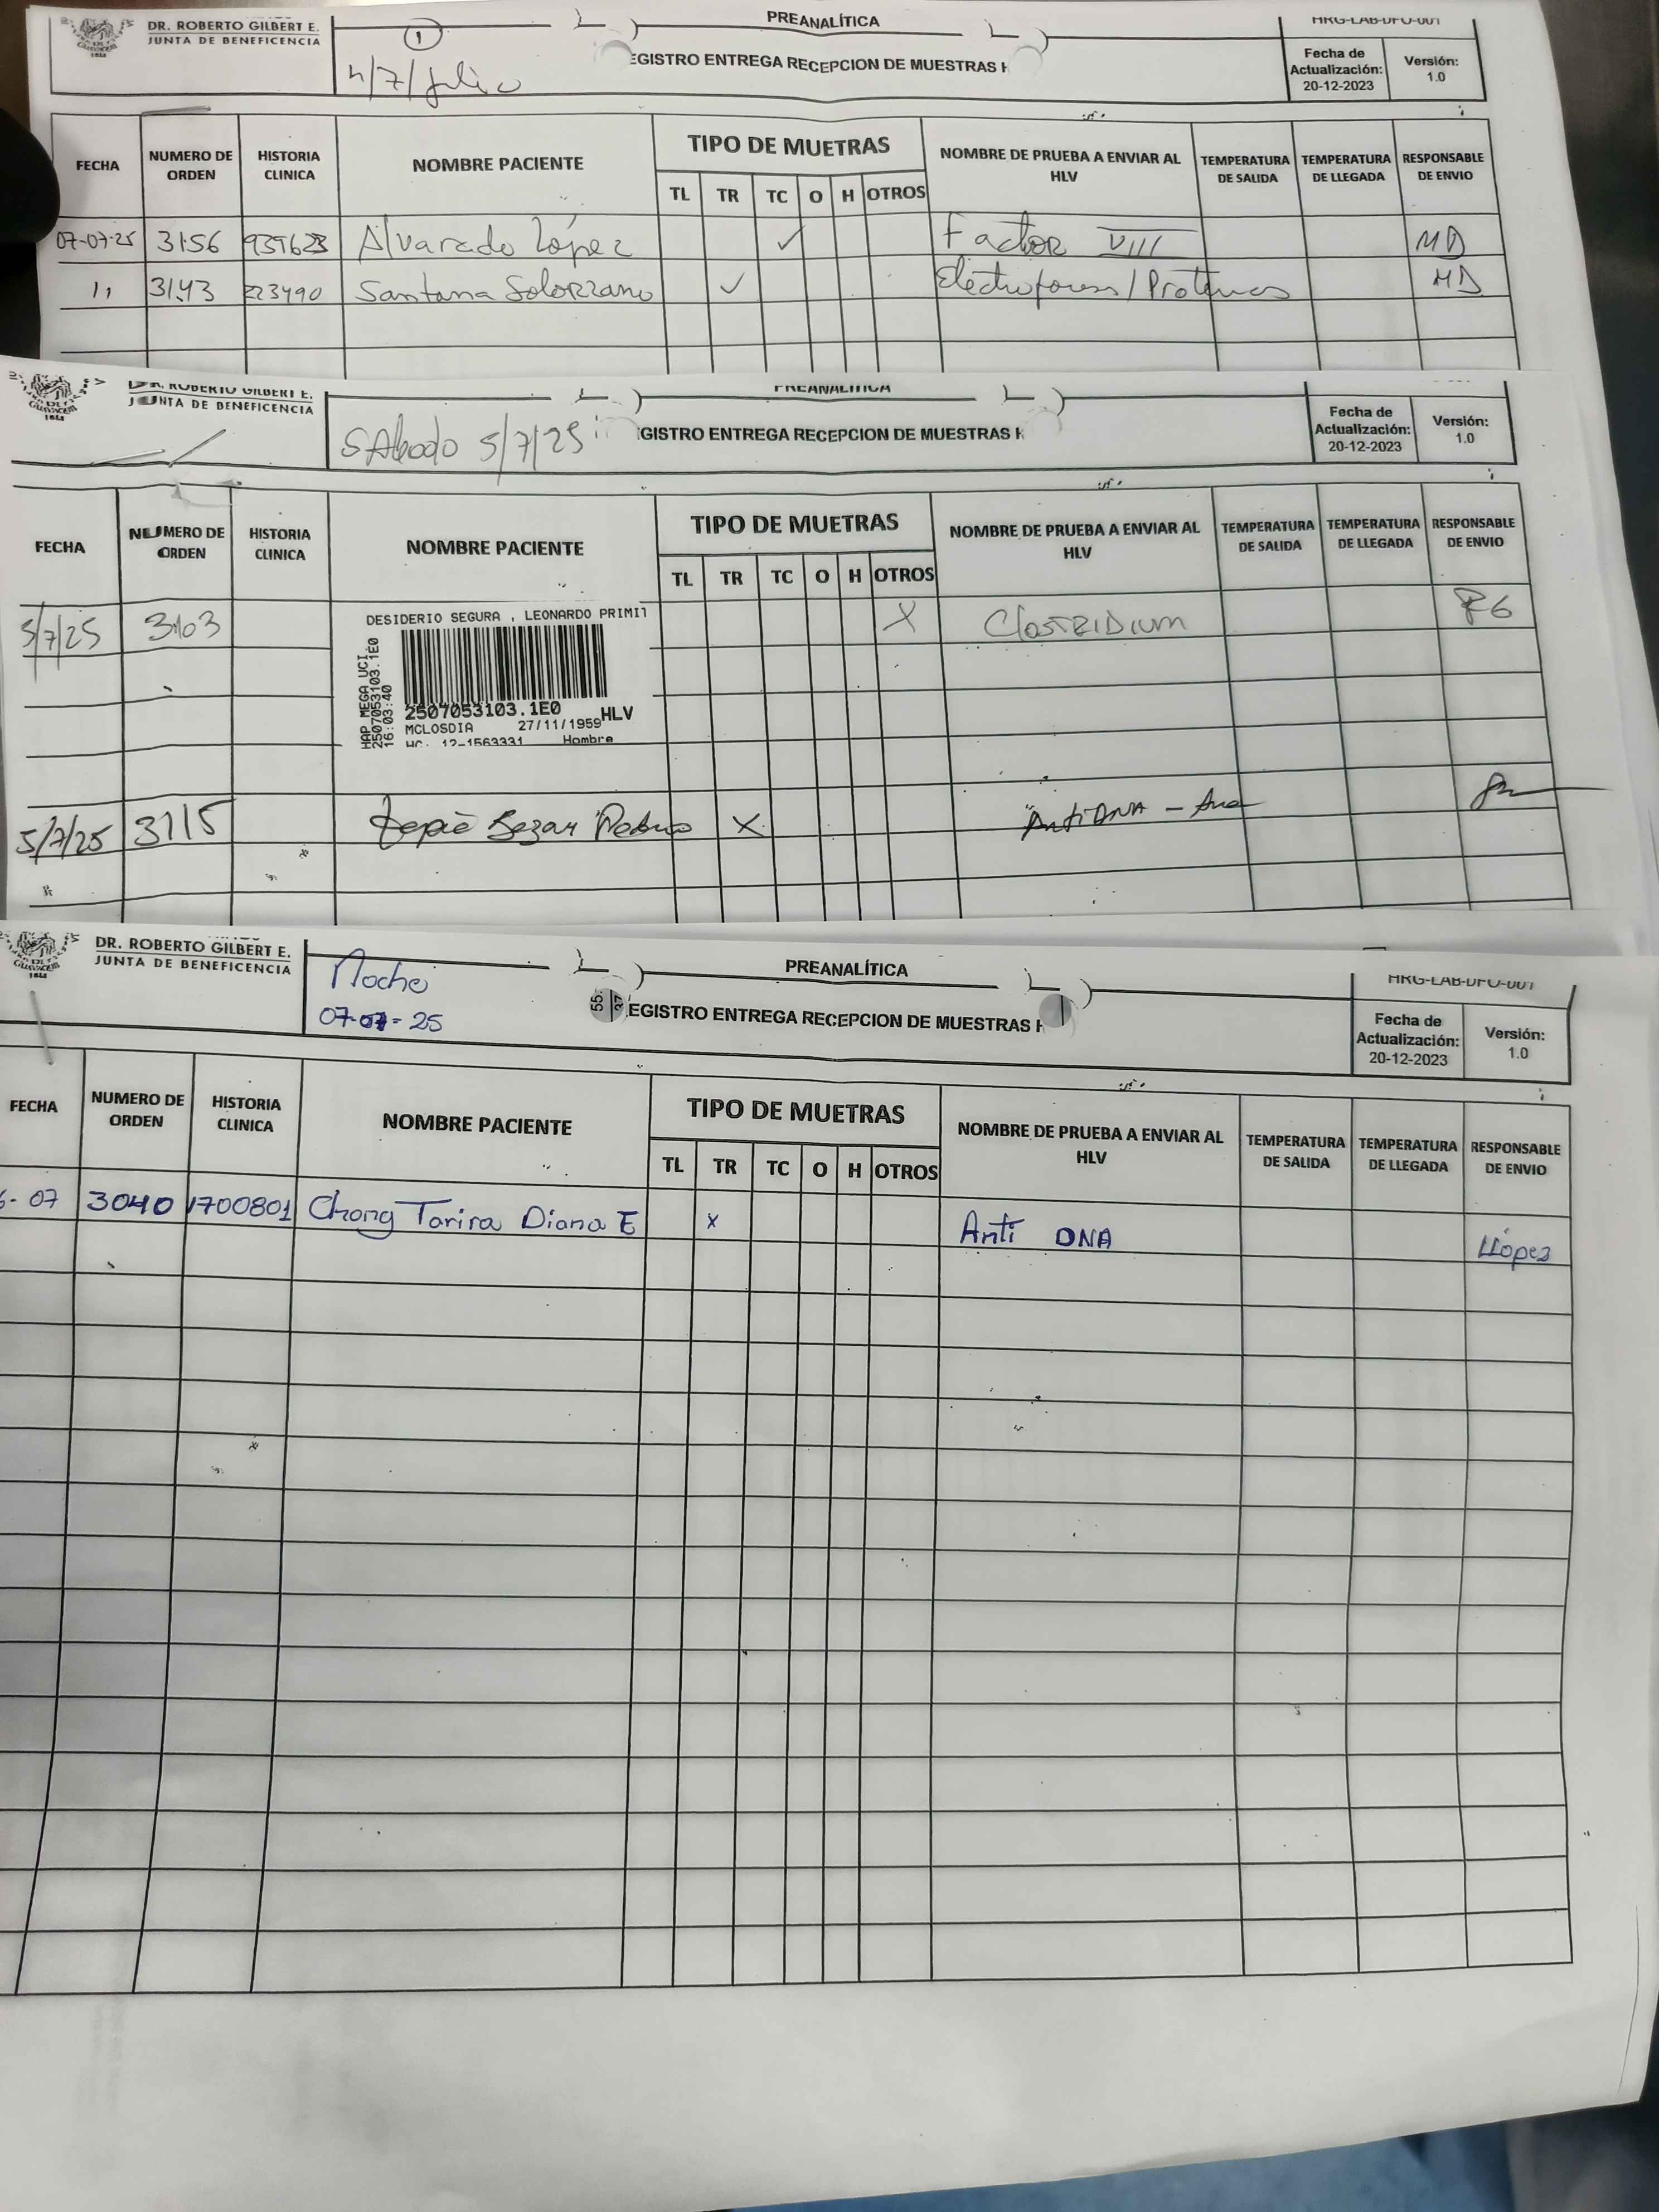 DR. ROBERTO GILBERT E.
JUNTA DE BENEFICENCIA
1
/7/Julio
PREANALÍTICA
EGISTRO ENTREGA RECEPCION DE MUESTRAS H
HRG-LAB-DFO-001
Fecha de Actualización: 20-12-2023
Versión: 1.0
FECHA NUMERO DE ORDEN HISTORIA CLINICA NOMBRE PACIENTE TIPO DE MUETRAS NOMBRE DE PRUEBA A ENVIAR AL HLV TEMPERATURA DE SALIDA TEMPERATURA DE LLEGADA RESPONSABLE DE ENVIO
TL TR TC O H OTROS
07-07-25 3156 Alvarado López ✓ Factor VIII MD
11 3143 223490 Santana Solorzano ✓ MD
DR. ROBERTO GILBERT E.
JUNTA DE BENEFICENCIA
SAbado 5/7/25
PREANALITICA
GISTRO ENTREGA RECEPCION DE MUESTRAS H
Fecha de Actualización: 20-12-2023
Versión: 1.0
FECHA NUMERO DE ORDEN HISTORIA CLINICA NOMBRE PACIENTE TIPO DE MUETRAS NOMBRE DE PRUEBA A ENVIAR AL HLV TEMPERATURA DE SALIDA TEMPERATURA DE LLEGADA RESPONSABLE DE ENVIO
TL TR TC O H OTROS
5/7/25 3103 X ClostRIDIUM
DESIDERIO SEGURA , LEONARDO PRIMIT
HAP MEGA UCI
2507053103.1E0
16:03:40
2507053103.1E0 HLV
MCLOSDIA 27/11/1959
HC: 12-1563331 Hombre
5/7/25 3115 X AntiDNA - Ana
DR. ROBERTO GILBERT E.
JUNTA DE BENEFICENCIA
Noche
07-07-25
PREANALÍTICA
EGISTRO ENTREGA RECEPCION DE MUESTRAS H
HRG-LAB-DFO-001
Fecha de Actualización: 20-12-2023
Versión: 1.0
FECHA NUMERO DE ORDEN HISTORIA CLINICA NOMBRE PACIENTE TIPO DE MUETRAS NOMBRE DE PRUEBA A ENVIAR AL HLV TEMPERATURA DE SALIDA TEMPERATURA DE LLEGADA RESPONSABLE DE ENVIO
TL TR TC O H OTROS
- 07 3040 1700801 Chong Tarira Diana E x Anti DNA LLópez